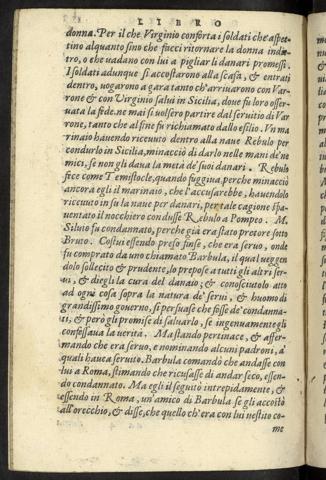 LIBRO
donna. Per il che Virginio conforta i soldati che aspet-
tino alquanto sino che facci ritornare la donna indie-
tro, o che uadano con lui a pigliar li danari promessi.
I soldati adunque si accostarono alla scafa, & entrati
dentro, uogarono a gara tanto ch'arriuarono con Var-
rone & con Virginio salui in Sicilia, doue fu loro osser-
uata la fede. ne mai si uolsero partire dal seruitio di Var
rone, tanto che al fine fu richiamato dallo esilio. Vn ma
rinaio hauendo riceuuto dentro alla naue Rebulo per
condurlo in Sicilia, minacciò di darlo nelle mani de' ne
mici, se non gli daua la metà de' suoi danari. Rebulo
fece come Temistocle, quando fuggiua, perche minacciò
ancora egli il marinaio, che l'accusarebbe, hauendolo
riceuuto in su la naue per danari, per tale cagione spa-
uentato il nocchiero condusse Rebulo a Pompeo. M.
Siluto fu condannato, perche già era stato pretore sotto
Bruto. Costui essendo preso finse, che era seruo, onde
fu comprato da uno chiamato Barbula, il qual ueggen
dolo sollecito & prudente, lo prepose a tutti gli altri ser-
ui, & diegli la cura del danaio; & conosciutolo atto
ad ogni cosa sopra la natura de' serui, & huomo di
grandissimo gouerno, si persuase che fosse de' condanna-
ti, & però gli promise di saluarlo, se ingenuamente gli
confessaua la uerita. Ma stando pertinace, & affer-
mando che era seruo, e nominando alcuni padroni, a'
quali haueа seruito, Barbula comandò che andasse con
lui a Roma, stimando che ricusasse di andar seco, essen-
do condannato. Ma egli il seguitò intrepidamente, &
essendo in Roma, un'amico di Barbula se gli accostò
all'orecchio, & disse, che quello ch'era con lui uestito co-
me